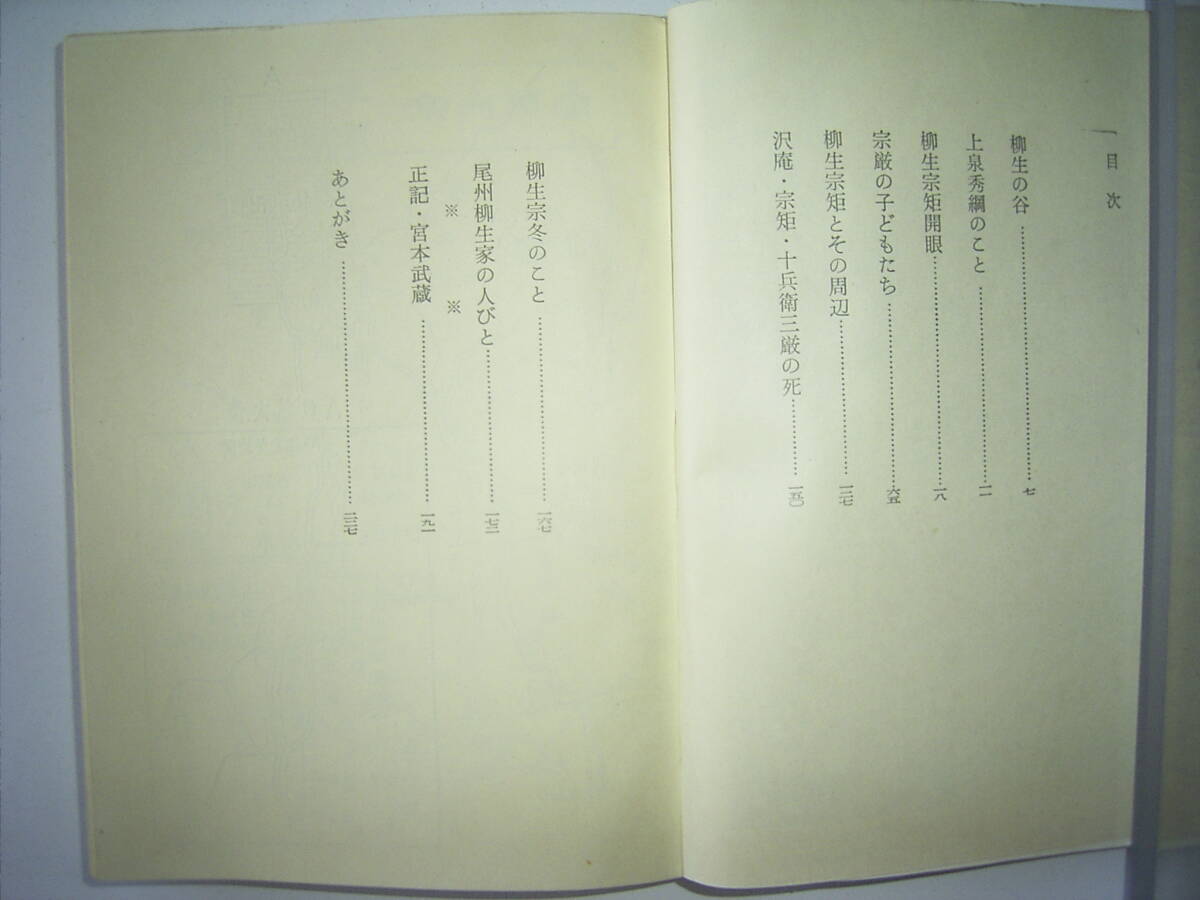 目次
柳生の谷……七
上泉秀綱のこと……一一
柳生宗矩開眼……一八
宗厳の子どもたち……六五
柳生宗矩とその周辺……一三七
沢庵・宗矩・十兵衛三厳の死……一五〇
柳生宗冬のこと……一六七
尾州柳生家の人びと……一七二
※　※
正記・宮本武蔵……一九一
あとがき……二三七